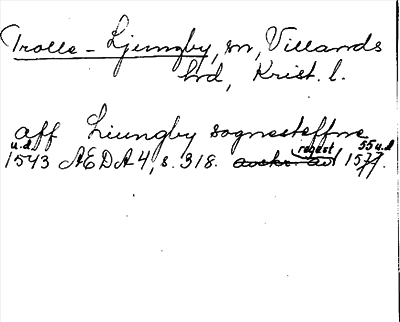 Trolle-Ljungby, sn, Villands
hd, Krist. l.
aff Liungby sognesteffne
u.d. 55 u.d
1543 AEDA 4, s. 318. regest 1577.